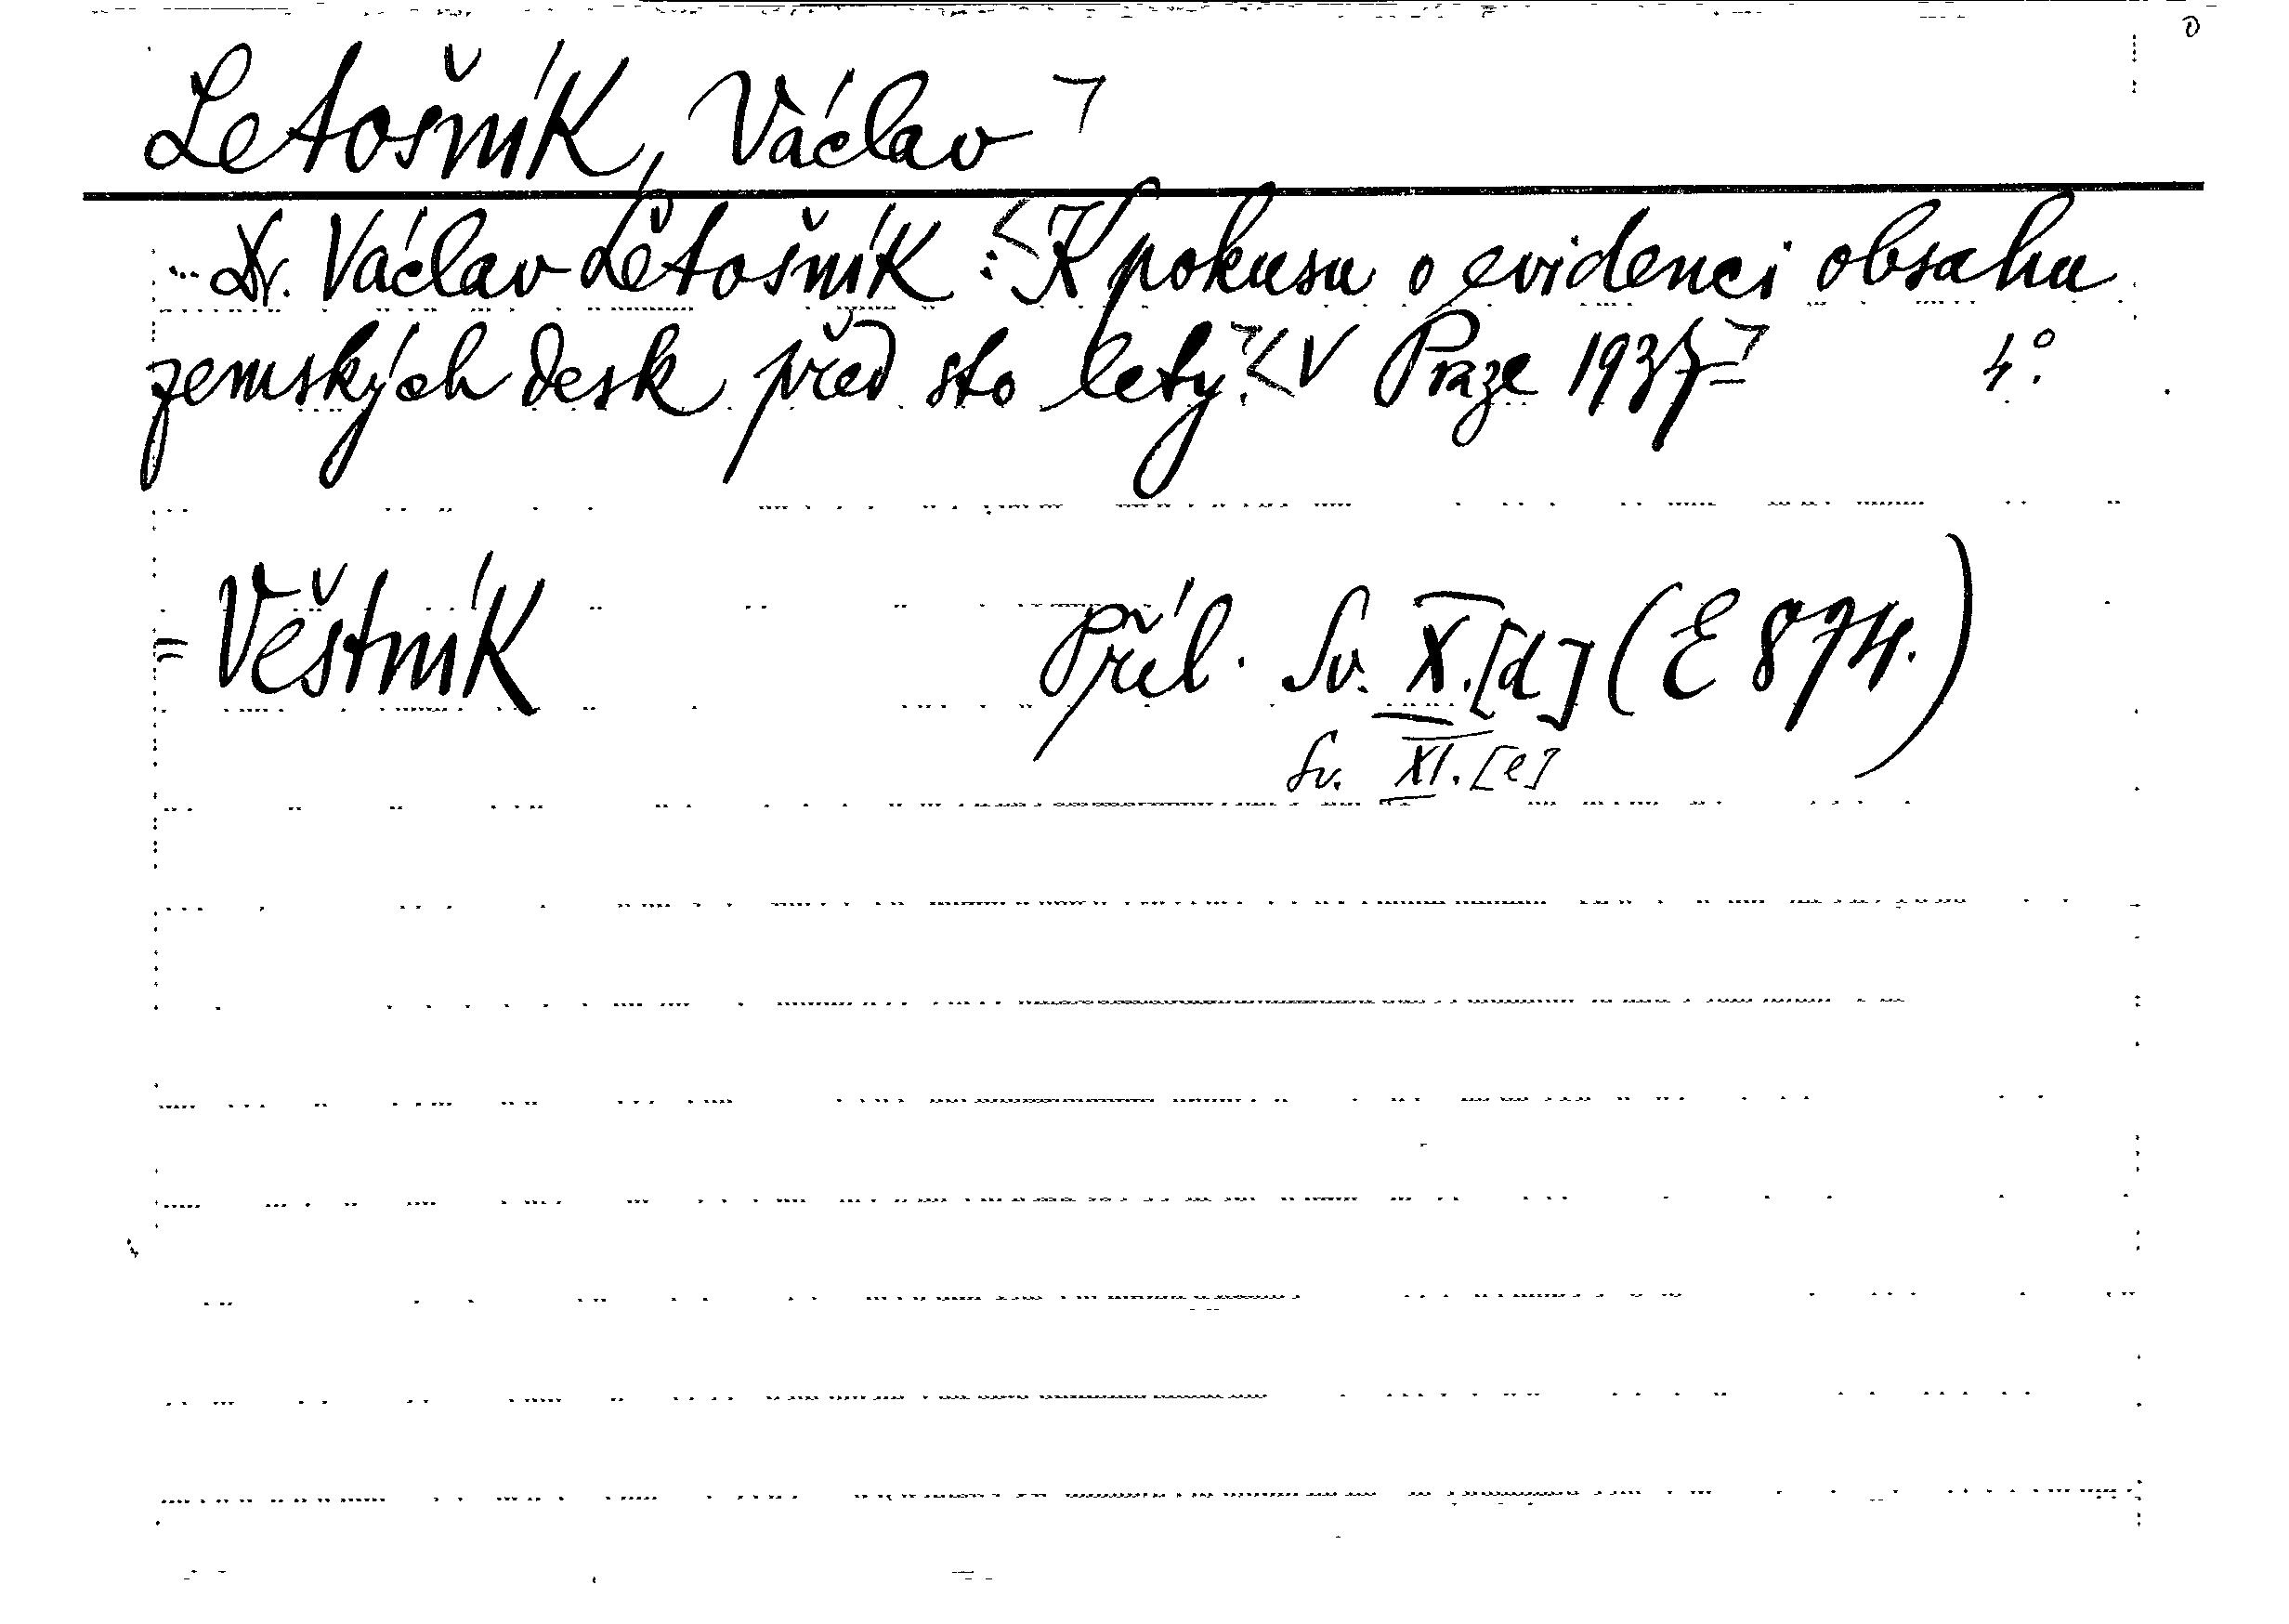 Letošník, Václav
... Dr. Václav Letošník : K pokusu o evidenci obsahu
zemských desk před sto lety. V Praze 1937 4°.
= Věstník Příl. Sv. X.[d] (E 874.)
Sv. XI.[e]